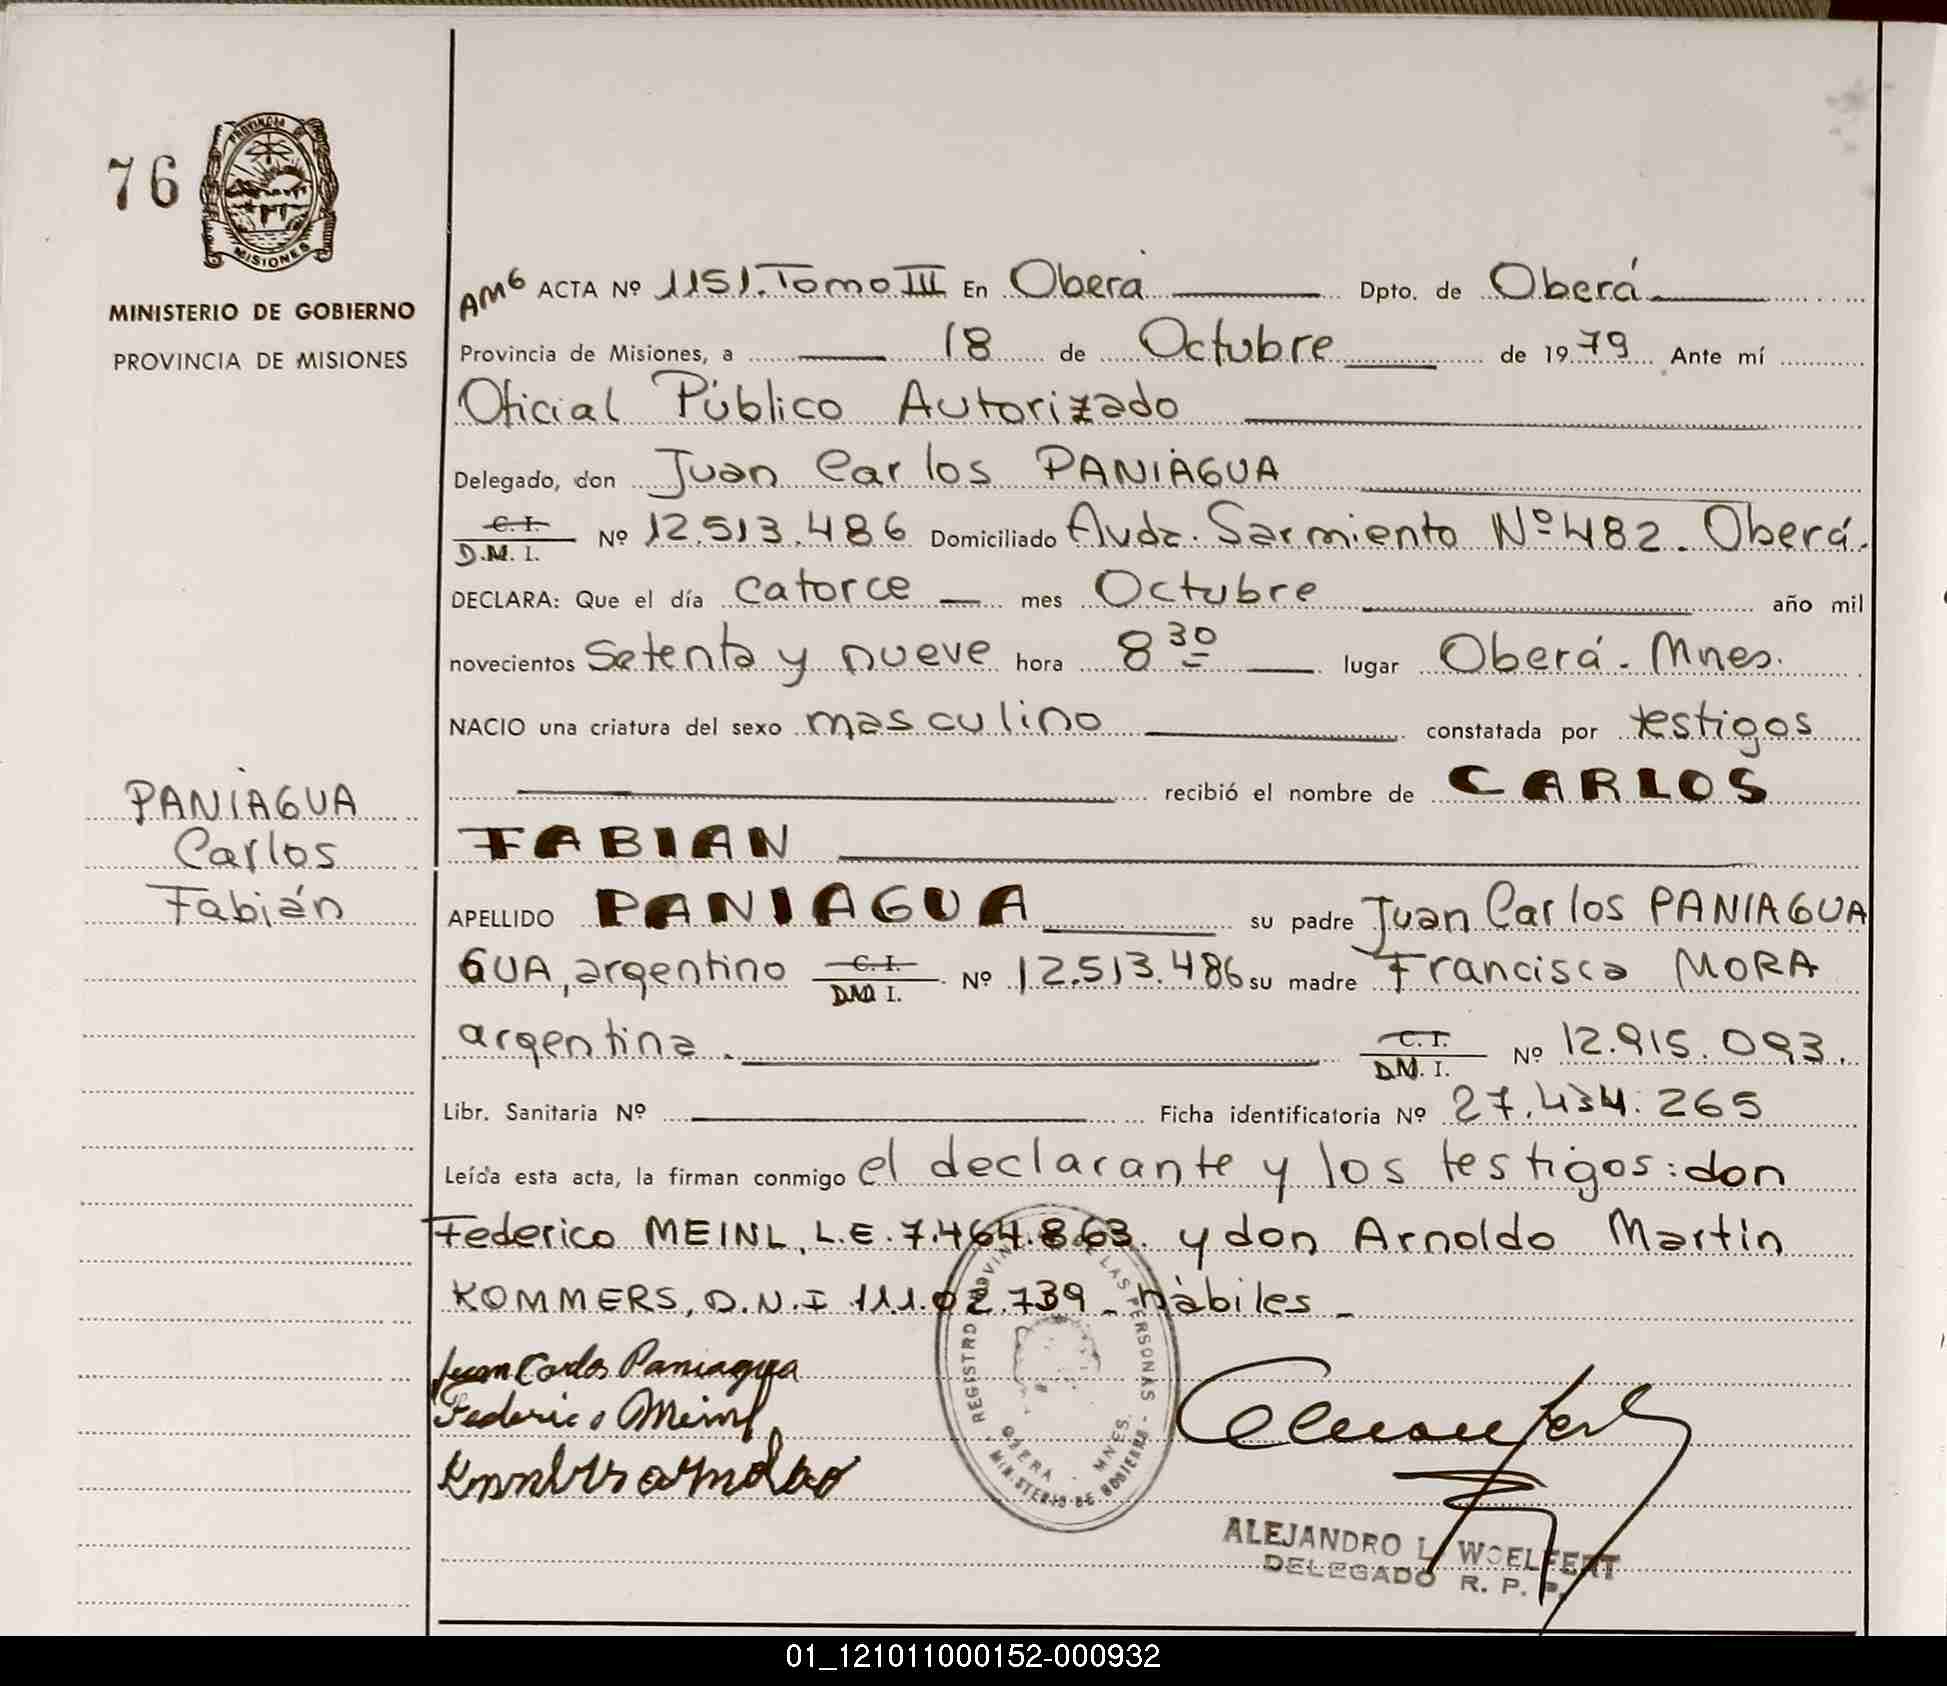 76
PROVINCIA DE
MISIONES
MINISTERIO DE GOBIERNO
PROVINCIA DE MISIONES
AMG ACTA Nº 1151. Tomo III En Oberá Dpto. de Oberá
Provincia de Misiones, a 18 de Octubre de 1979 Ante mí
Oficial Público Autorizado
Delegado, don Juan Carlos PANIAGUA
C. I.
D.M. I. Nº 12.513.486 Domiciliado Avda. Sarmiento Nº 482. Oberá.
DECLARA: Que el día catorce mes Octubre año mil
novecientos setenta y nueve hora 8 30 lugar Oberá. Mnes.
NACIO una criatura del sexo masculino constatada por testigos
recibió el nombre de CARLOS
FABIAN
PANIAGUA
Carlos
Fabián
APELLIDO PANIAGUA su padre Juan Carlos PANIAGUA
GUA, argentino C. I. D.M. I. Nº 12.513.486 su madre Francisca MORA
argentina. C. I. D.M. I. Nº 12.915.093.
Libr. Sanitaria Nº Ficha identificatoria Nº 27.434.265
Leída esta acta, la firman conmigo el declarante y los testigos: don
Federico MEINL, L.E. 7.464.863. y don Arnoldo Martin
KOMMERS, D.N.I 111.02.739 - hàbiles -
Juan Carlos Paniagua
Federico Meinl
REGISTRO PROVIN LAS PERSONAS
OBERA - MNES.
MINISTERIO DE GOBIERNO
ALEJANDRO L. WOELFERT
DELEGADO R. P. P.
01_121011000152-000932